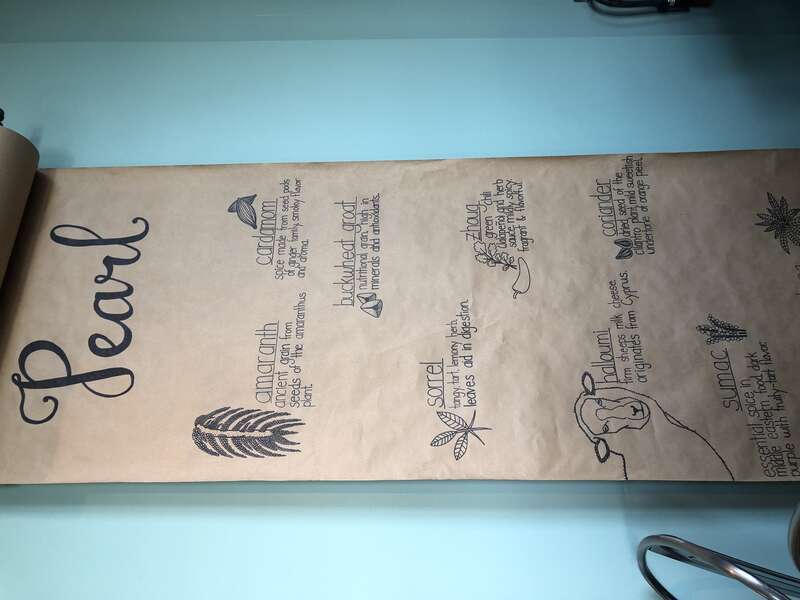 Pearl
amaranth
ancient grain from
seeds of the amaranthus
plant.
cardamom
spice made from seed pods
of ginger family, smokey flavor
and aroma.
buckwheat groat
nutritional grain high in
minerals and antioxidants.
sorrel
tangy, tart, lemony herb,
leaves aid in digestion.
zhoug
green chili
jalapeño and herb
sauce. mildly spicy,
fragrant & flavorful.
halloumi
firm sheeps milk cheese
originates from Cyprus.
coriander
dried seed of the
cilantro plant, mild sweetish
undertone of orange peel.
sumac
essential spice in
middle eastern food, dark
purple with fruity-tart flavor.